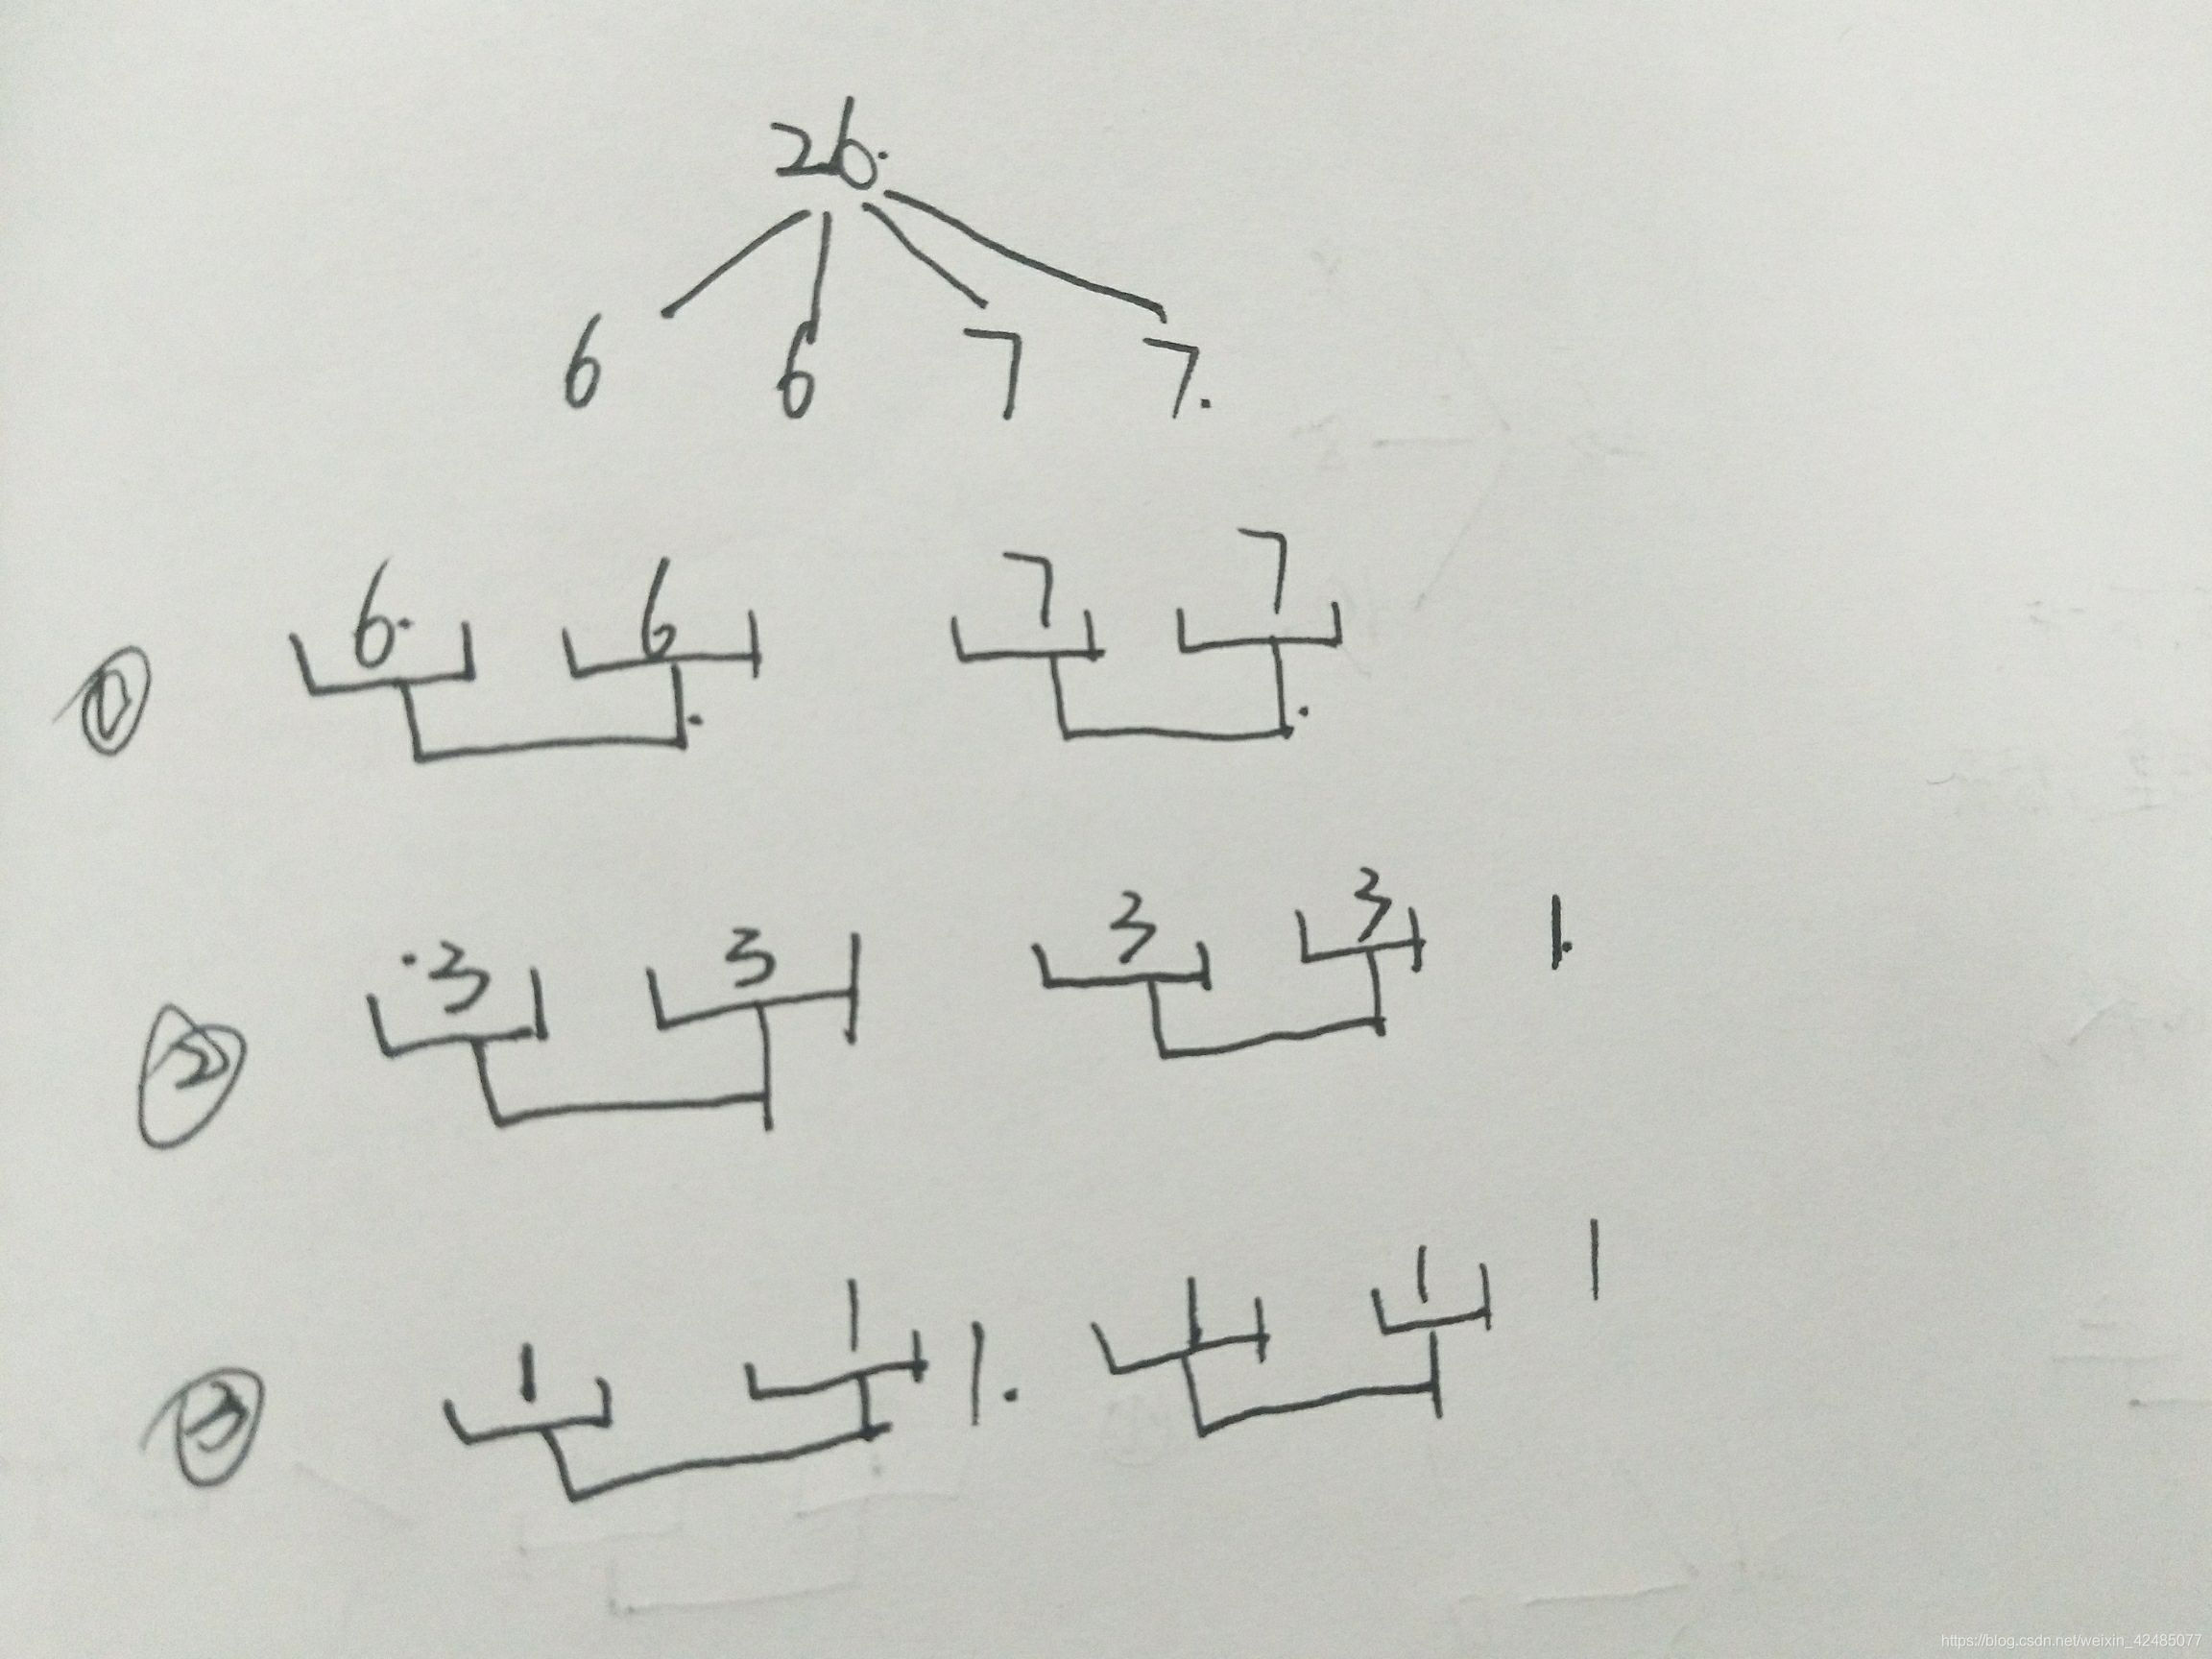 26.
6 6 7 7.
① 6. 6 7 7
② 3 3 3 3 1.
③ 1 1 1. 1 1 1
https://blog.csdn.net/weixin_42485077